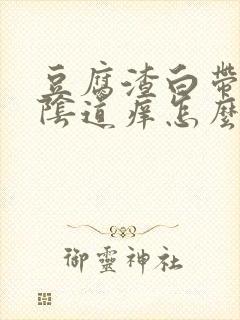 豆腐渣白帶
陰道痒怎麼
御靈神社